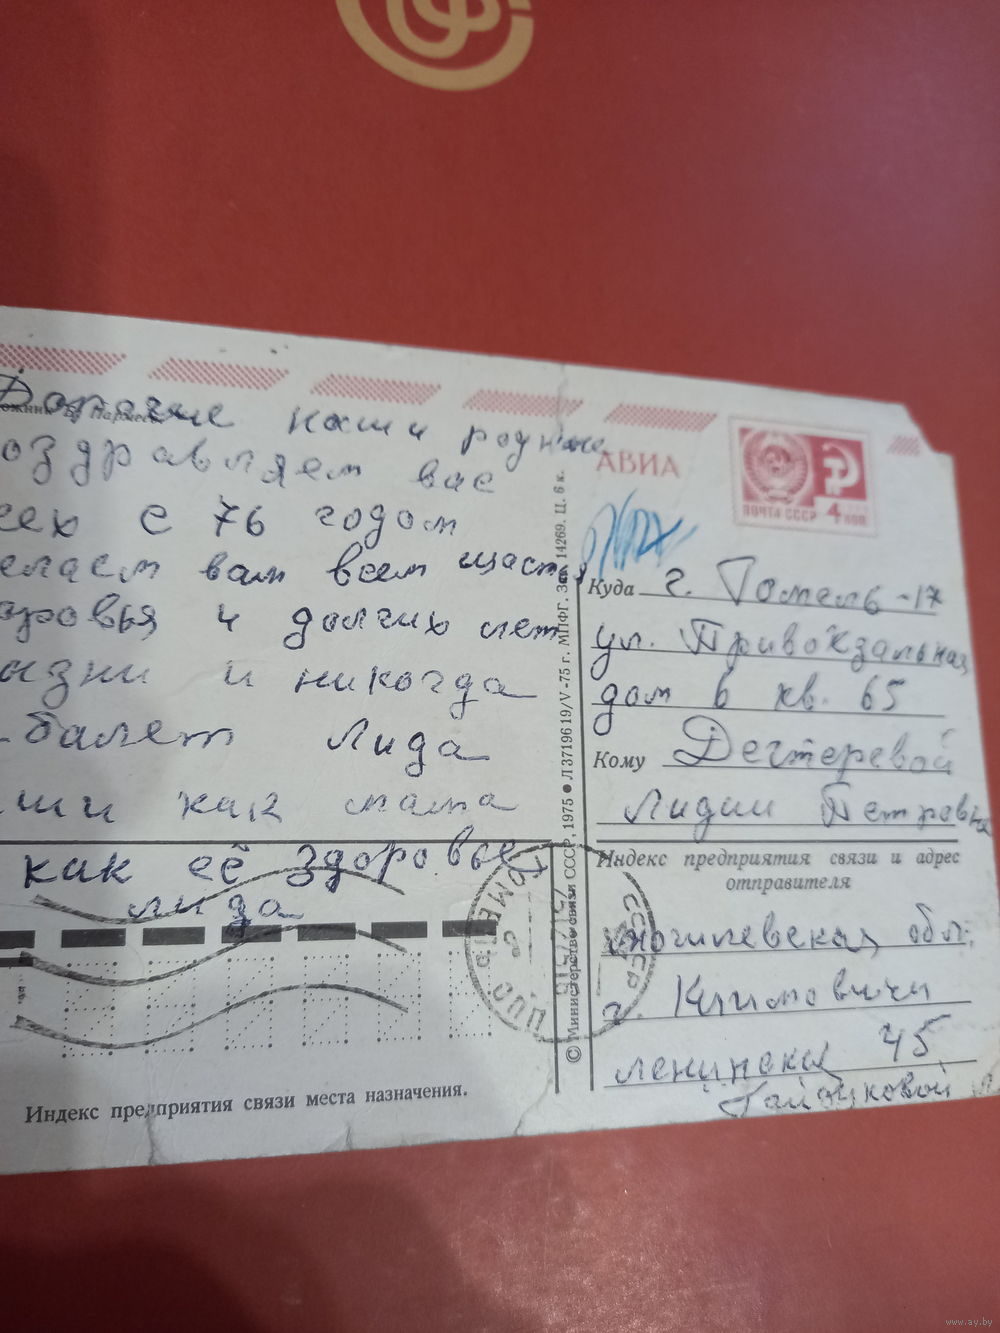 Дорогие наши родные
оздравляем вас
сех с 76 годом
елаем вам всем щастья
оровья и долгих лет
ызни и никогда
балеть Лида
ши как мама
как её здоровье
лида
Индекс предприятия связи места назначения.
© Министерство связи СССР, 1975 ● Л 3719619/V-75 г. МПФГ. Зак. 14269. Ц. 6 к.
АВИА
ПОЧТА СССР 4 коп
Куда г. Гомель-17
ул. Привокзальная
дом 6 кв. 65
Кому Дегтеревой
Лидии Петровне
Индекс предприятия связи и адрес
отправителя
могилевская обл.
г. Климовичи
ленинская 45
СССР
www.ay.by